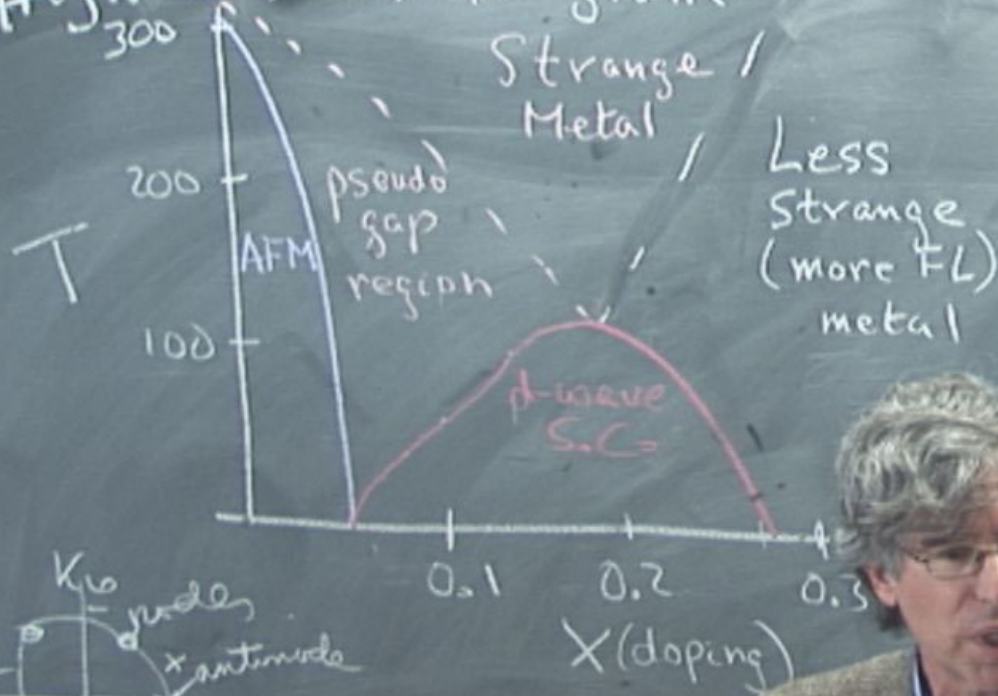 300
Strange
Metal
Less
Strange
(more FL)
metal
200
pseudo
gap
region
AFM
T
100
d-wave
S.C.
0.1
0.2
0.3
X (doping)
nodes
x antinode